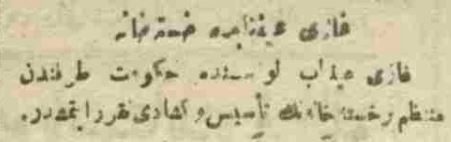 غازی عینتابده خسته‌خانه
غازی عینتاب لواسنده حکومت طرفندن
منتظم بر خسته‌خانه‌نك تأسیس و كشادی تقرر ایتمشدر.